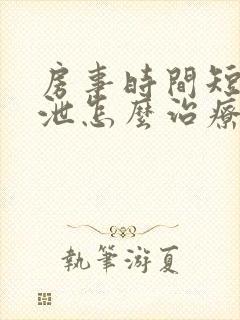 房事時間短
泄怎麼治療
執筆游夏